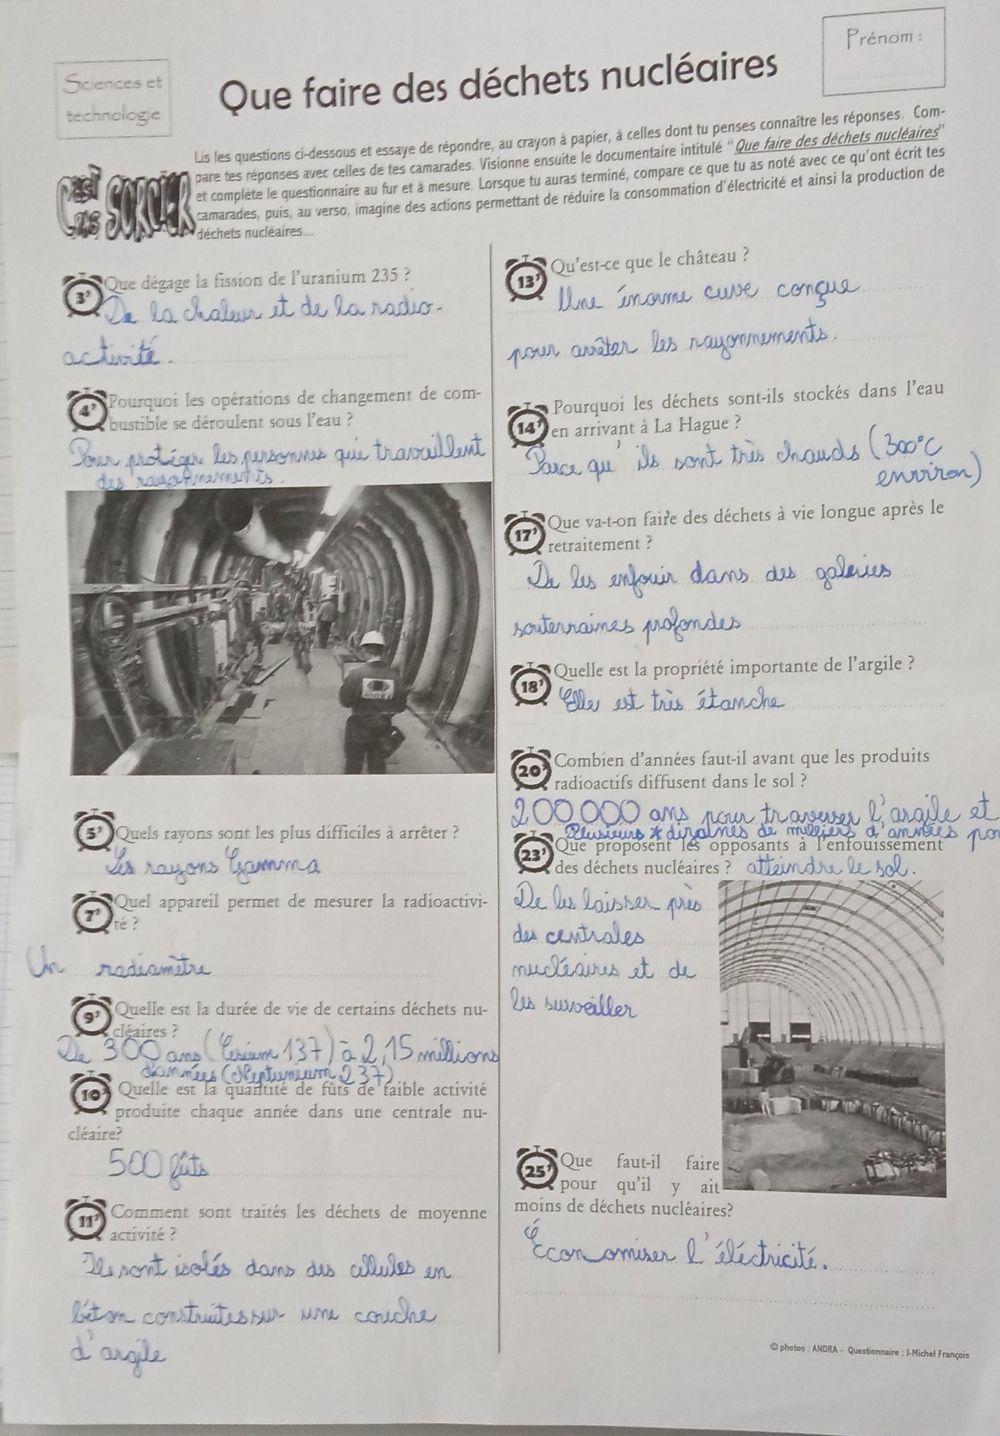 Sciences et
technologie
Que faire des déchets nucléaires
Prénom :
Lis les questions ci-dessous et essaye de répondre, au crayon à papier, à celles dont tu penses connaître les réponses. Com-
pare tes réponses avec celles de tes camarades. Visionne ensuite le documentaire intitulé " Que faire des déchets nucléaires"
et complète le questionnaire au fur et à mesure. Lorsque tu auras terminé, compare ce que tu as noté avec ce qu'ont écrit tes
camarades, puis, au verso, imagine des actions permettant de réduire la consommation d'électricité et ainsi la production de
déchets nucléaires...
C'est pas SORCIER
3' Que dégage la fission de l'uranium 235 ?
De la chaleur et de la radio-
activité.
4' Pourquoi les opérations de changement de com-
bustible se déroulent sous l'eau ?
Pour protéger les personnes qui travaillent
des rayonnements.
5' Quels rayons sont les plus difficiles à arrêter ?
Les rayons Gamma
7' Quel appareil permet de mesurer la radioactivi-
té ?
Un radiamètre
9' Quelle est la durée de vie de certains déchets nu-
cléaires ?
De 300 ans (Cesium 137) à 2,15 millions
d'années (Neptunium 237)
10' Quelle est la quantité de fûts de faible activité
produite chaque année dans une centrale nu-
cléaire?
500 fûts
11' Comment sont traités les déchets de moyenne
activité ?
Ils sont isolés dans des cellules en
béton construites sur une couche
d'argile
13' Qu'est-ce que le château ?
Une énorme cuve conçue
pour arrêter les rayonnements.
14' Pourquoi les déchets sont-ils stockés dans l'eau
en arrivant à La Hague ?
Parce qu'ils sont très chauds (300°C
environ)
17' Que va-t-on faire des déchets à vie longue après le
retraitement ?
De les enfouir dans des galeries
souterraines profondes
18' Quelle est la propriété importante de l'argile ?
Elle est très étanche
20' Combien d'années faut-il avant que les produits
radioactifs diffusent dans le sol ?
200 000 ans pour traverser l'argile et
Plusieurs dizaines de milliers d'années po
atteindre le sol.
23' Que proposent les opposants à l'enfouissement
des déchets nucléaires ?
De les laisser près
des centrales
nucléaires et de
les surveiller
25' Que faut-il faire
pour qu'il y ait
moins de déchets nucléaires?
Économiser l'éléctricité.
© photos : ANDRA - Questionnaire : J-Michel François